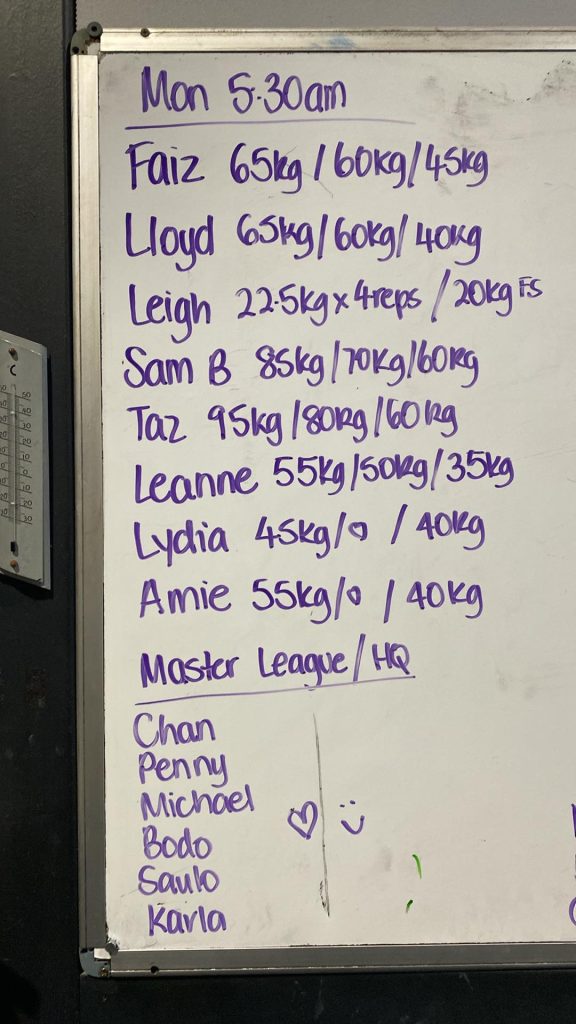 Mon 5:30am
Faiz 65kg/60kg/45kg
Lloyd 65kg/60kg/40kg
Leigh 22.5kg x 4reps / 20kg FS
Sam B 85kg/70kg/60kg
Taz 95kg/80kg/60kg
Leanne 55kg/50kg/35kg
Lydia 45kg/0 / 40kg
Amie 55kg/0 / 40kg
Master League/HQ
Chan
Penny
Michael
Bodo
Saulo
Karla
C